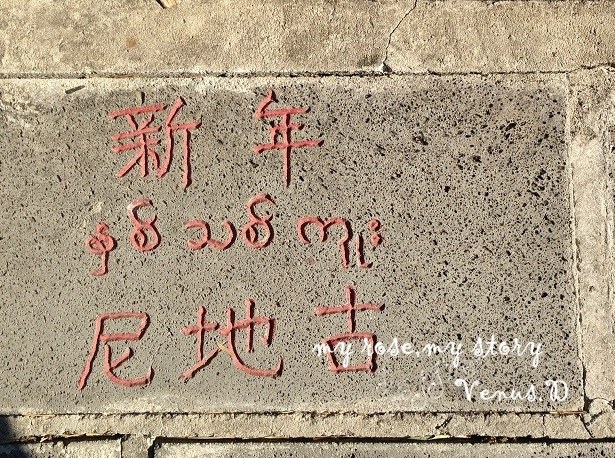 新年
နှစ်သစ်ကူး
尼地古
my rose.my story
Venus.D